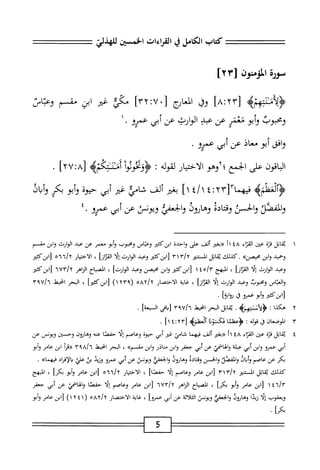 كتاب الكامل في القراءات الخمسين للهذلي
سورة المؤمنون [٢٣]
﴿لِأَمَـٰنَـٰتِهِمْ﴾ [٢٣:٨] وفي المعارج [٧٠:٣٢] مكيٌّ غير ابن مقسم وعبّاسٌ
ومحبوبٌ وأبو مَعْمَرٍ عن عبدِ الوارثِ عن أبي عمرو .١
وافق أبو معاذ عن أبي عمرو .
الباقون على الجمع ؛٢ وهو الاختيار لقوله : ﴿وَتَخُونُوٓاْ أَمَـٰنَـٰتِكُمْ﴾ [٢٧:٨] .
﴿ٱلْعَظْمَ﴾ فيهما٣ [١٤/١٤:٢٣] بغير ألف شاميٌّ غير أبي حيوة وأبو بكرٍ وأبانُ
والمفضَّلُ والحسنُ وقتادةُ وهارونُ والجعفيُّ ويونسُ عن أبي عمرو .٤
١ يُقابل قرّة عين القرّاء ١٤٨أ «بغير ألف على واحدة ابن كثير وعبّاس ومحبوب وأبو معمر عن عبد الوارث وابن مقسم
وحميد وابن محيصن» . كذلك يُقابل المستنير ٣١٣/٢ [ابن كثير وعبد الوارث إلّا القزّاز] ، الاختيار ٥٦٦/٢ [ابن كثير
وعبد الوارث إلّا القزّاز] ، المبهج ١٤٥/٣ [ابن كثير وابن محيصن وعبد الوارث] ، المصباح الزاهر ٦٧٣/٢ [ابن كثير
والعبّاس ومحبوبٌ وعبد الوارث إلّا القزّاز] ، غاية الاختصار ٥٨٢/٢ (١٢٣٩) [ابن كثير] ، البحر المحيط ٣٩٧/٦
[ابن كثير وأبو عمرو في رواية] .
٢ هكذا : ﴿لِأَمَـٰنَـٰتِهِمْ﴾ . يُقابل البحر المحيط ٣٩٧/٦ [باقي السبعة] .
٣ الموضعان في قوله : ﴿عِظَـٰمًا فَكَسَوْنَا ٱلْعِظَـٰمَ﴾ [١٤:٢٣] .
٤ يُقابل قرّة عين القرّاء ١٤٨أ «بغير ألف فيهما شاميّ غير أبي حيوة وعاصم إلّا حفصًا عنه وهارون وحسين ويونس عن
أبي عمرو وابن أبي عبلة والهاشميّ عن أبي جعفر وابن مناذر وابن مقسم» ، البحر المحيط ٣٩٨/٦ «قرأ ابن عامر وأبو
بكر عن عاصم وأبانُ والمفضَّلُ والحسن وقتادةُ وهارونُ والجعفيُّ ويونسُ عن أبي عمرو وزيدُ بنُ عليٍّ بالإفراد فيهما» .
كذلك يُقابل المستنير ٣١٣/٢ [ابن عامر وعاصم إلّا حفصًا] ، الاختيار ٥٦٦/٢ [ابن عامر وأبو بكر] ، المبهج
١٤٦/٣ [ابن عامر وأبو بكر] ، المصباح الزاهر ٦٧٣/٢ [ابن عامر وعاصم إلّا حفصًا والهاشميّ عن أبي جعفر
ويعقوب إلّا زيدًا وهارونُ والجعفيُّ ويونسُ الثلاثة عن أبي عمرو] ، غاية الاختصار ٥٨٢/٢ (١٢٤١) [ابن عامر وأبو
بكر] .
5